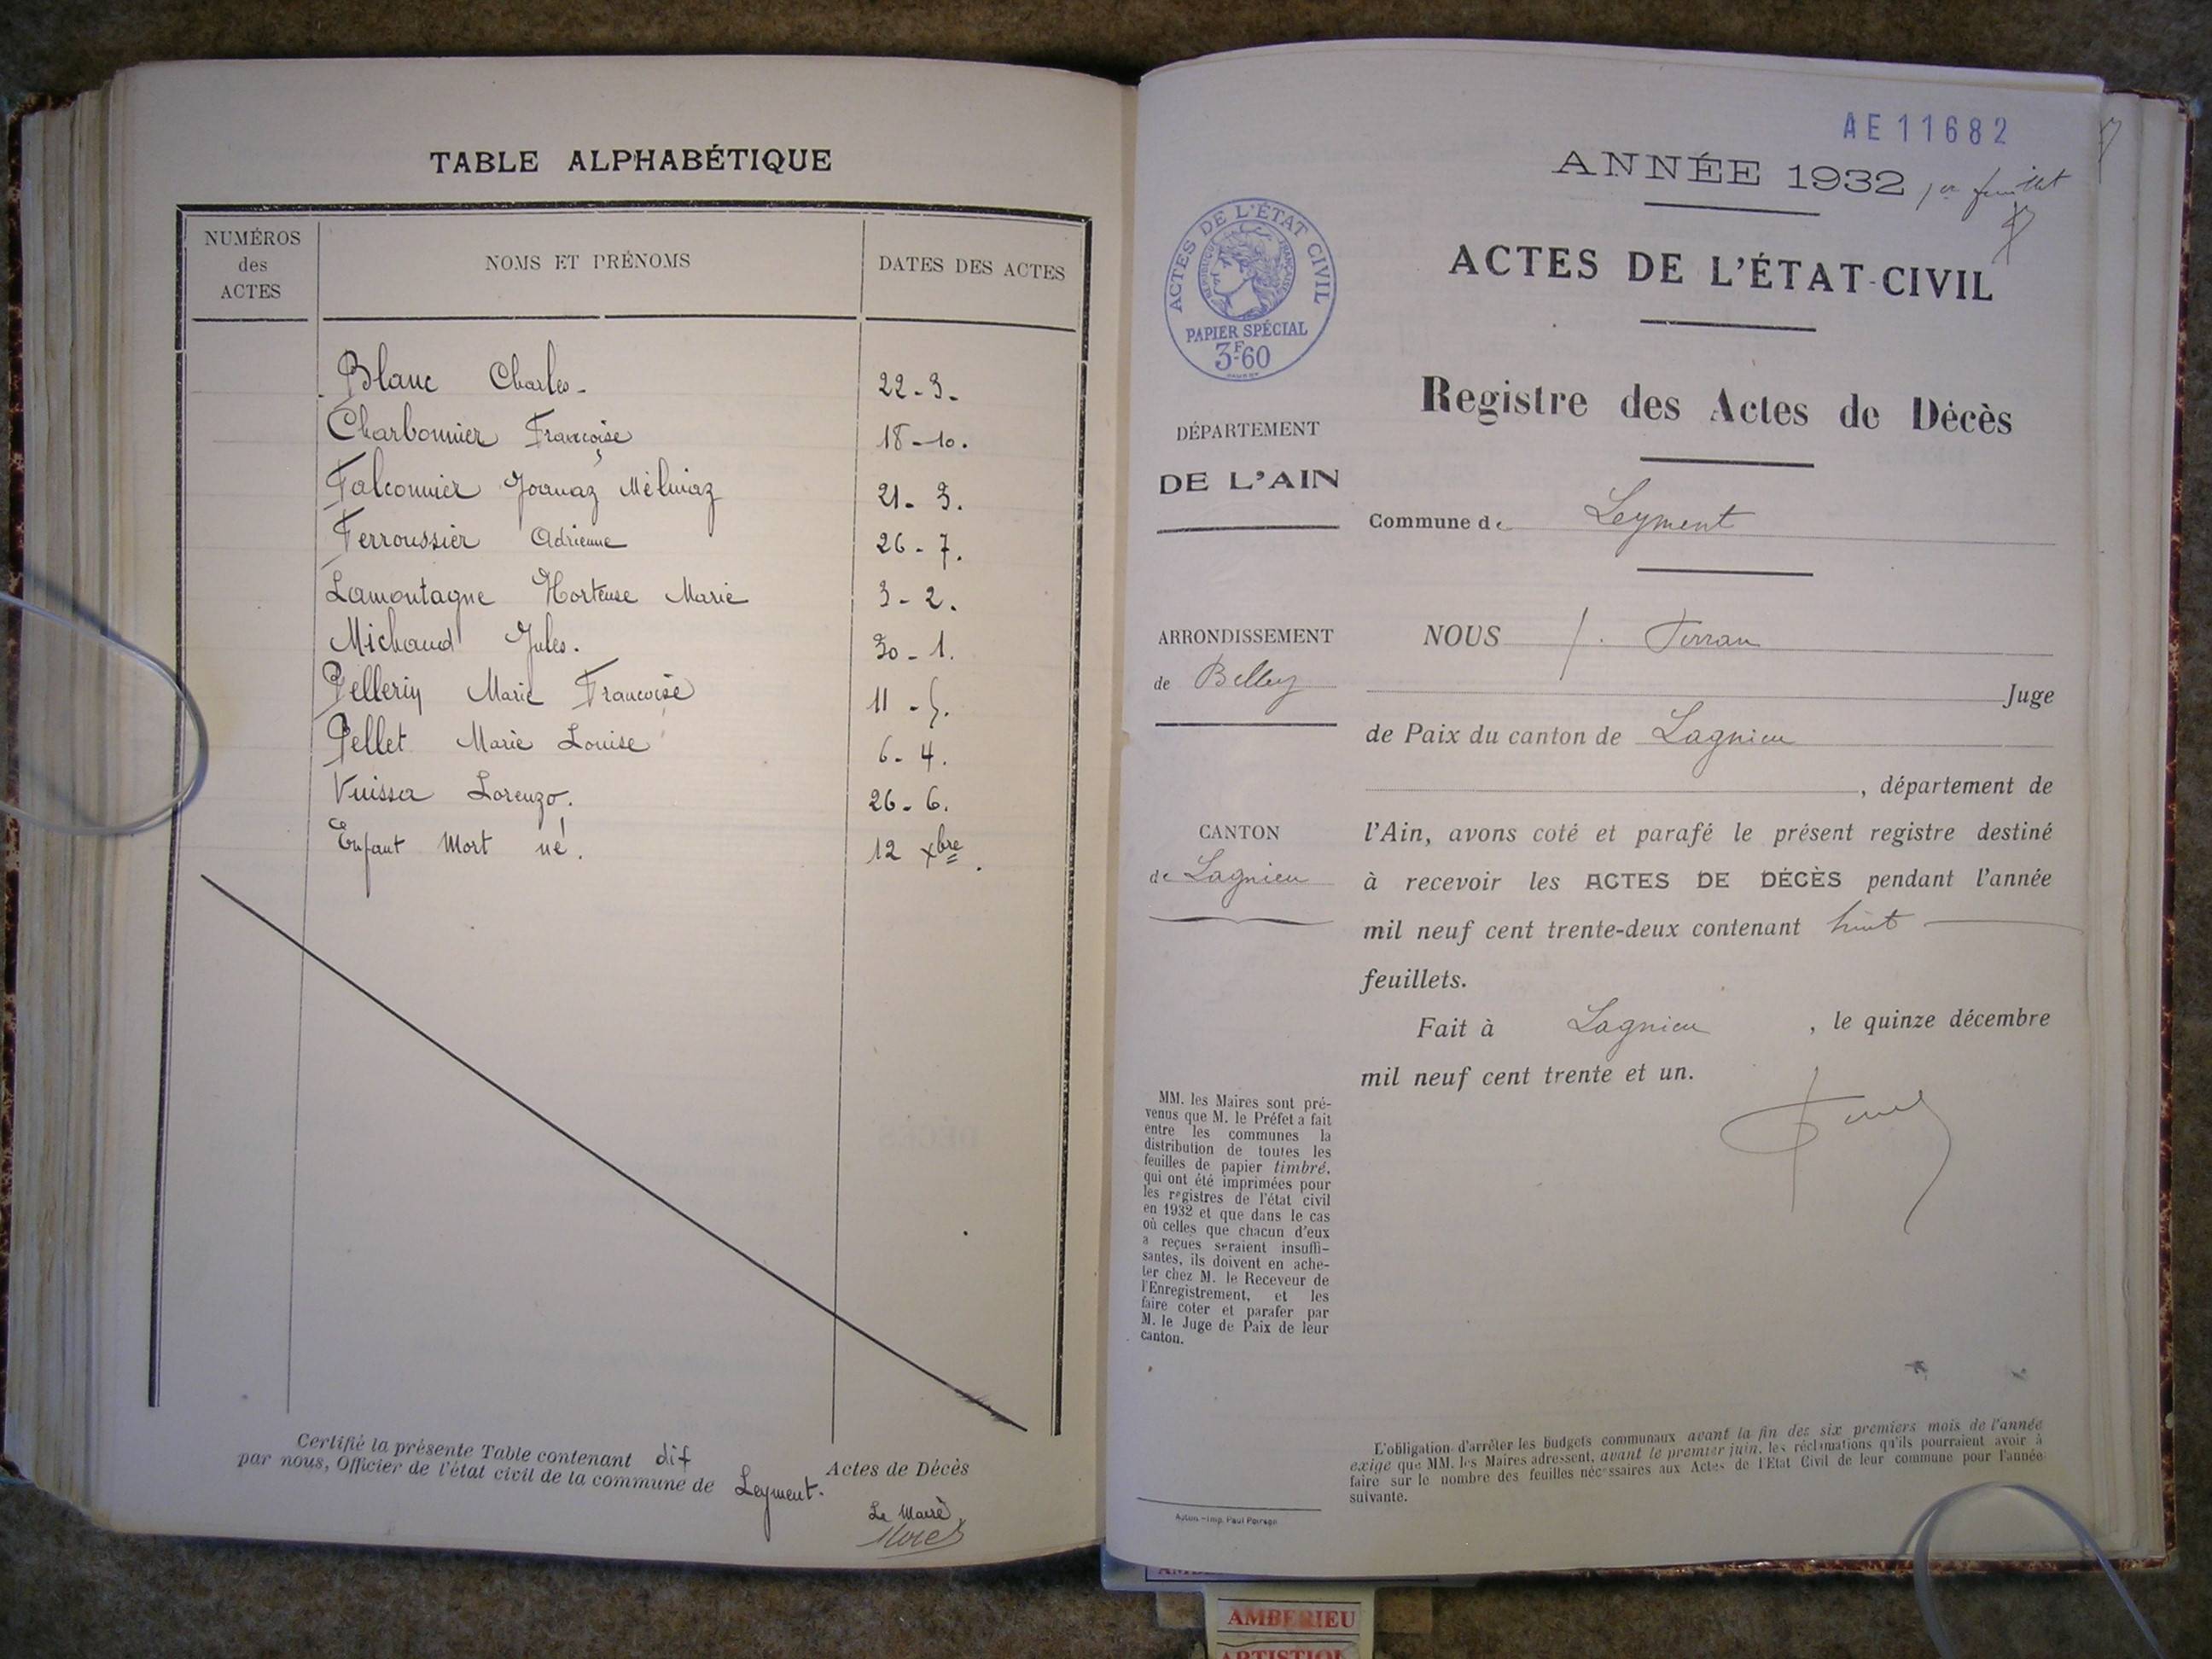 TABLE ALPHABÉTIQUE
NUMÉROS
des
ACTES
NOMS ET PRÉNOMS
DATES DES ACTES
Blanc Charles. 22-3.
Charbonnier Françoise 18-10.
Falconnier Joannaz Mélinaz 21-3.
Ferroussier Adrienne 26-7.
Lamontagne Hortense Marie 3-2.
Michaud Jules. 30-1.
Pellerin Marie Françoise 11-5.
Pellet Marie Louise 6-4.
Lorenzo. 26-6.
Enfant Mort né. 12 Xbre.
Certifié la présente Table contenant dix Actes de Décès
par nous, Officier de l'état civil de la commune de Leyment.
Le Maire
AE11682
ANNÉE 1932 1er feuillet
ACTES DE L'ÉTAT CIVIL
RÉPUBLIQUE FRANÇAISE
PAPIER SPÉCIAL
3F60
ACTES DE L'ÉTAT-CIVIL
Registre des Actes de Décès
DÉPARTEMENT
DE L'AIN
Commune de Leyment
ARRONDISSEMENT
de Belley
NOUS
Juge
de Paix du canton de Lagnieu
, département de
CANTON
de Lagnieu
l'Ain, avons coté et parafé le présent registre destiné
à recevoir les ACTES DE DÉCÈS pendant l'année
mil neuf cent trente-deux contenant huit
feuillets.
Fait à Lagnieu, le quinze décembre
mil neuf cent trente et un.
MM. les Maires sont pré-
venus que M. le Préfet a fait
entre les communes la
distribution de toutes les
feuilles de papier timbré,
qui ont été imprimées pour
les registres de l'état civil
en 1932 et que dans le cas
où celles que chacun d'eux
a reçues seraient insuffi-
santes, ils doivent en ache-
ter chez M. le Receveur de
l'Enregistrement, et les
faire coter et parafer par
M. le Juge de Paix de leur
canton.
L'obligation d'arrêter les budgets communaux avant la fin des six premiers mois de l'année
exige que MM. les Maires adressent, avant le premier juin, les réclamations qu'ils pourraient avoir à
faire sur le nombre des feuilles nécessaires aux Actes de l'Etat Civil de leur commune pour l'année
suivante.
Autun. - Imp. Paul Poirson
AMBERIEU